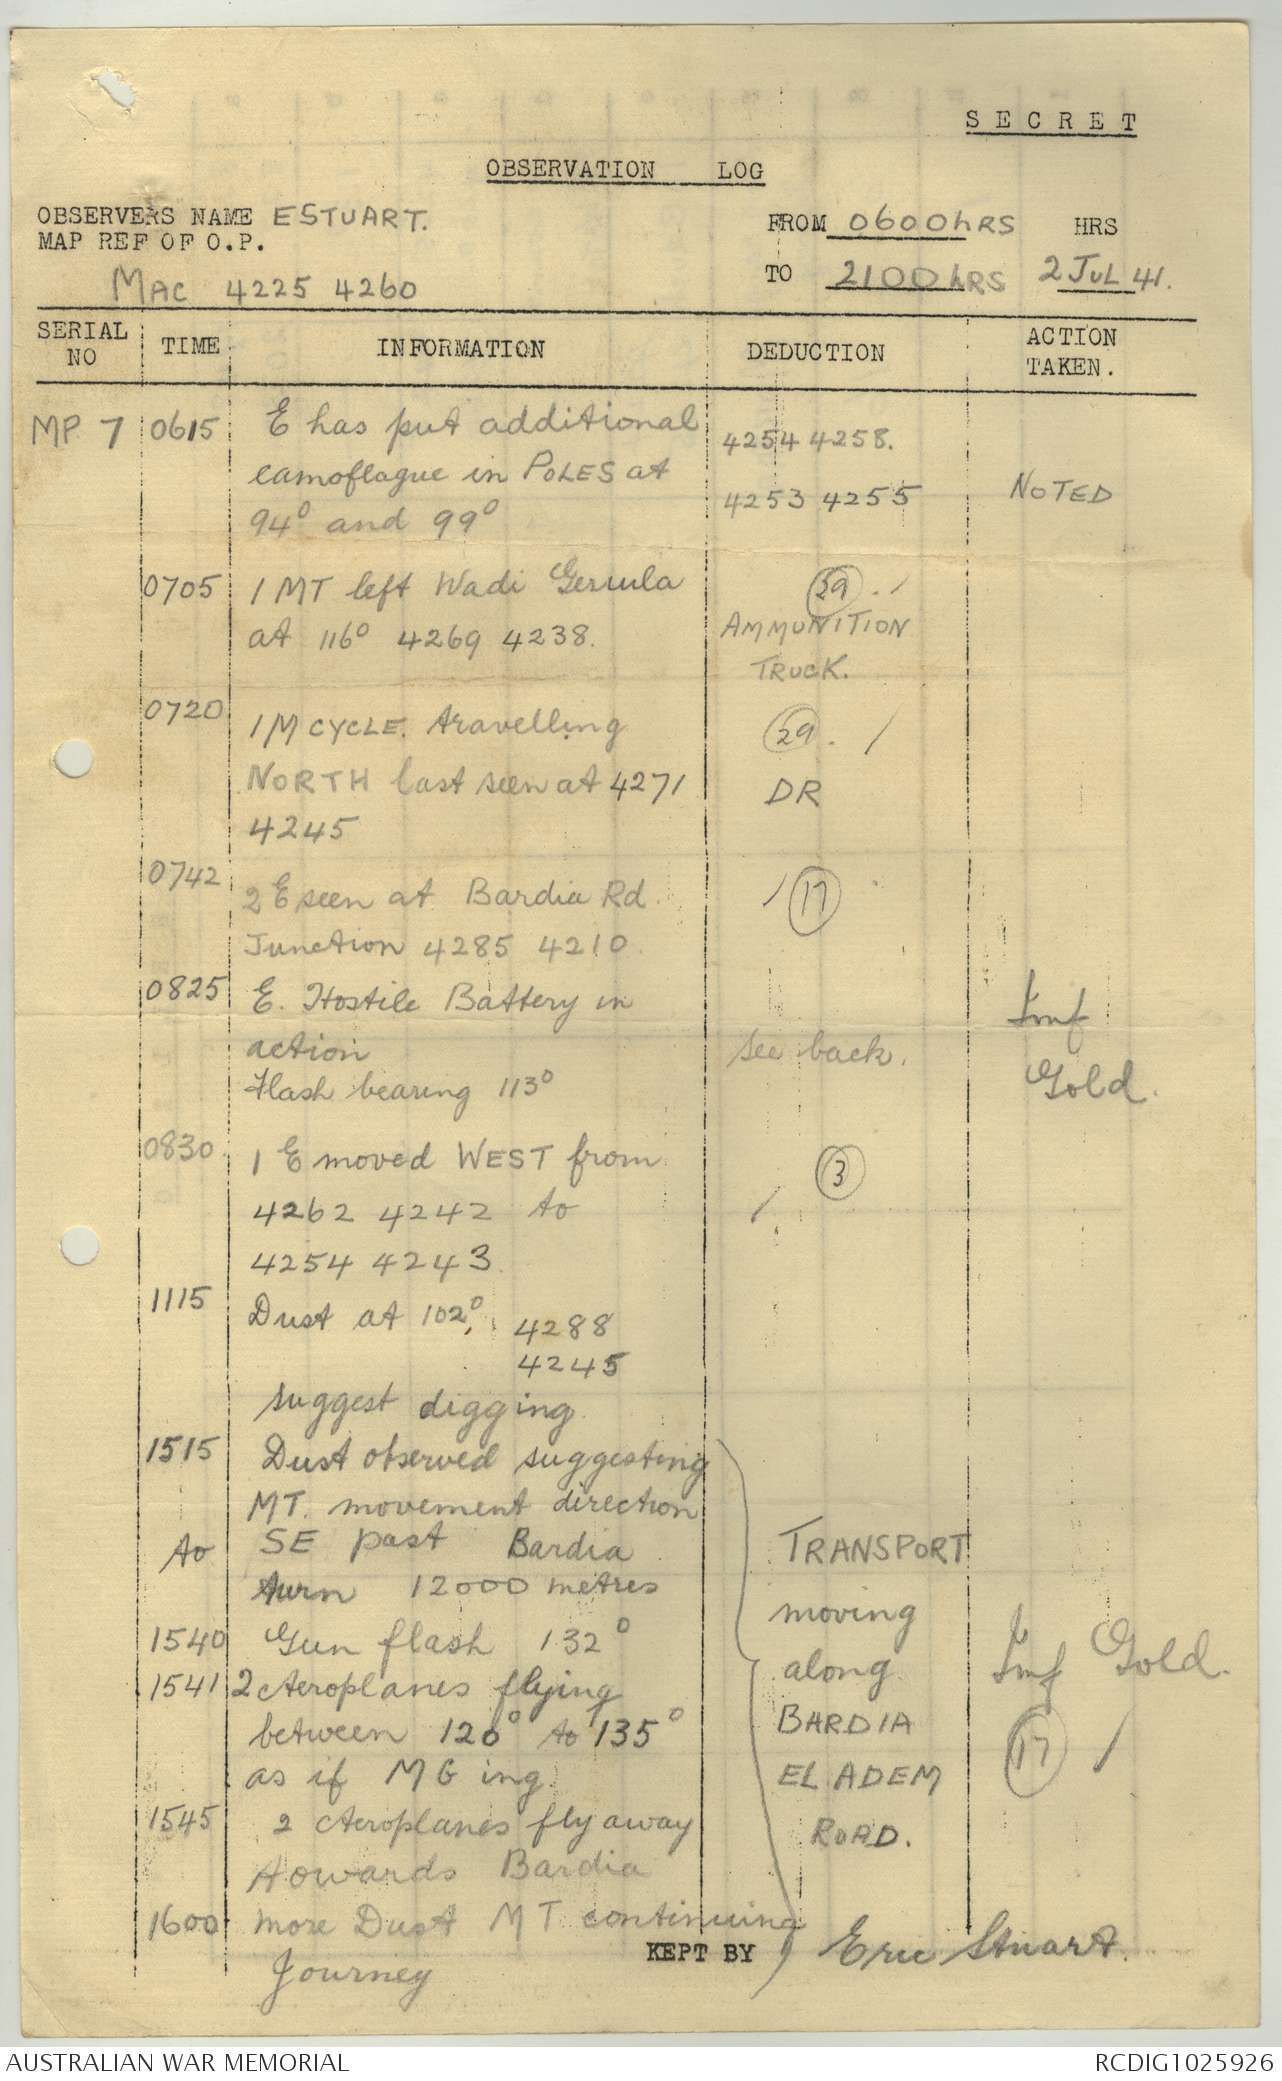 SECRET
OBSERVATION LOG
OBSERVERS NAME E STUART.
FROM 0600hRS HRS
MAP REF OF O.P.
MAC 4225 4260
TO 2100hRS 2 JUL 41.
SERIAL NO TIME INFORMATION DEDUCTION ACTION TAKEN.
MP 7 0615 E has put additional
camoflague in POLES at
94° and 99°
4254 4258.
4253 4255
NOTED
0705 1 MT left Wadi
at 116° 4269 4238.
29 /
AMMUNITION
TRUCK.
0720 1 M CYCLE. travelling
NORTH last seen at 4271
4245
29. /
DR
0742 2 E seen at Bardia Rd.
Junction 4285 4210.
/ 17
0825 E. Hostile Battery in
action
Flash bearing 113°
see back.
Inf
Gold.
0830 1 E moved WEST from
4262 4242 to
4254 4243
/ 3
1115 Dust at 102°, 4288
4245
suggest digging.
1515 Dust observed suggesting
MT. movement direction
to SE past Bardia
turn 12000 metres
1540 Gun flash 132°
1541 2 Aeroplanes flying
between 120° to 135°
as if M G ing.
1545 2 Aeroplanes fly away
towards Bardia
1600 more Dust MT continuing
Journey
TRANSPORT
moving
along
BARDIA
EL ADEM
ROAD.
Inf Gold.
17 /
KEPT BY Eric Stuart.
AUSTRALIAN WAR MEMORIAL
RCDIG1025926